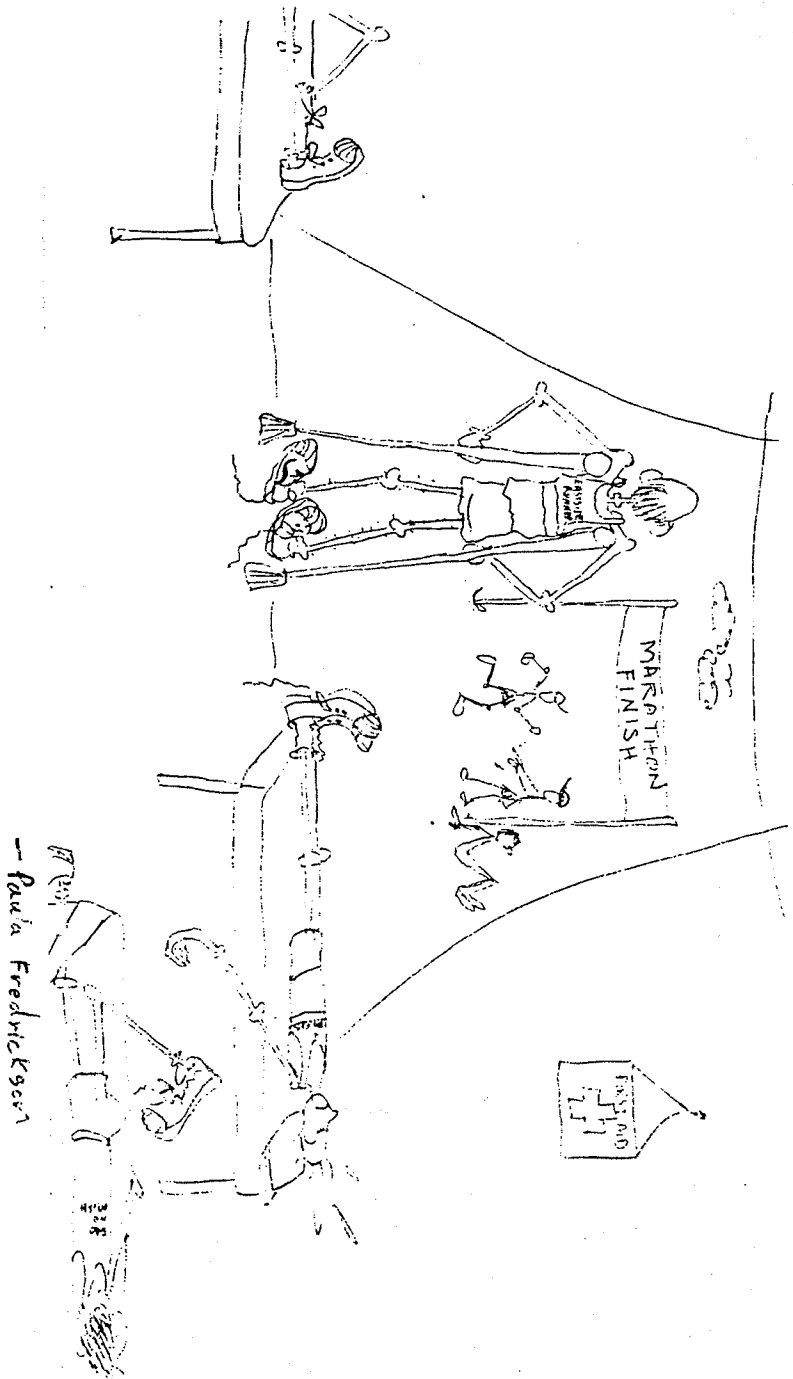 MARATHON
FINISH
FIRST AID
— Paula Fredrickson